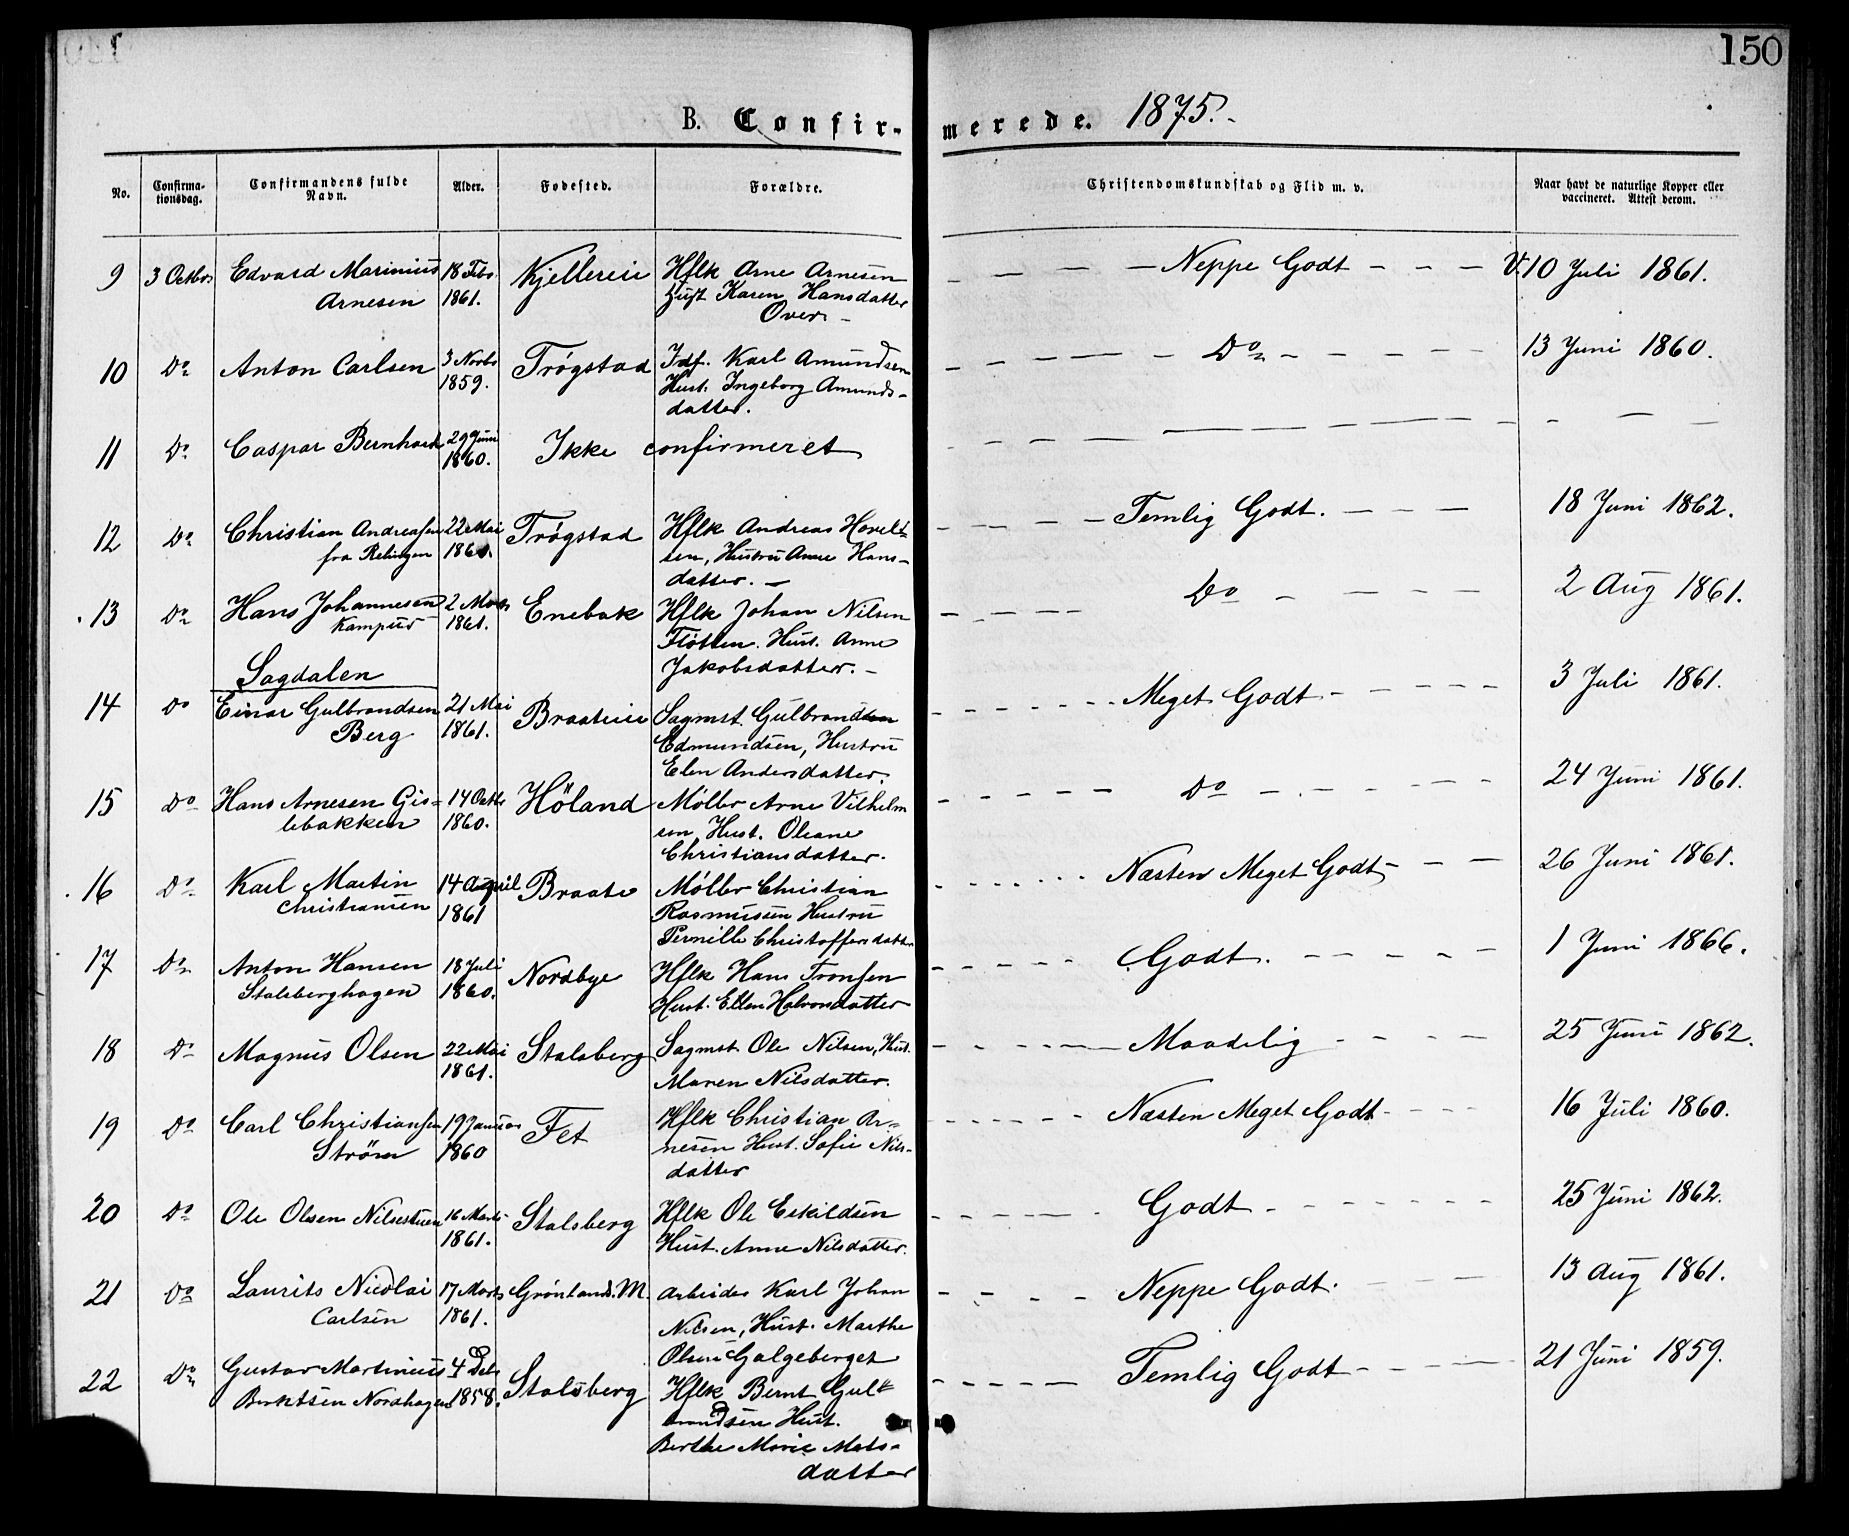 150
B. Confirmerede. 1875.
No. Confirmationsdag. Confirmandens fulde Navn. Alder. Fødested. Forældre. Christendomskundskab og Flid m. v. Naar havt de naturlige Kopper eller vaccineret. Attest derom.
9 3 Octbr Edvard Marinius 18 Febr Kjellereie Hflk Arne Arnesen — — — Neppe Godt — — — V. 10 Juli 1861.
Arnesen 1861. Karen Hansdatter
Over –
10 Do Anton Carlsen 3 Novbr Trøgstad Idf. Karl Amundsen — — — Do — — — 13 Juni 1860.
1859. Hust. Ingeborg Amunds-
datter.
11 Do Caspar Bernhard 29 Juni Ikke confirmeret — — —
1860.
12 Do Christian Andreasen 22 Mai Trøgstad Hflk Andreas Hovel- — — — Temlig Godt. — — — 18 Juni 1862.
fra Relingen 1860. sen, Hustru Anne Hans-
datter. –
13 Do Hans Johannesen 2 Marts Enebak Hflk Johan Nilsen — — — Do — — — 2 Aug 1861.
Kampus 1861. Fløtten. Hust. Anne
Jakobsdatter. –
Sagdalen
14 Do Einar Gulbrandsen 21 Mai Braateie Sagmst. Gulbrand — — — Meget Godt — — — 3 Juli 1861.
Berg 1861. Edmundsen, Hustru
Elen Andersdatter.
15 Do Hans Arnesen Gis- 14 Octbr Höland Møller Arne Vilhelm — — — Do — — — 24 Juni 1861.
lebakken 1860. sen, Hust. Oleane
Christiansdatter.
16 Do Karl Martin 14 April Braate Møller Christian — — — Næsten Meget Godt — — 26 Juni 1861.
Christiansen 1861 Rasmussen Hustru
Pernille Christoffersdatter
17 Do Anton Hansen 18 Juli Nordbye Hflk Hans Tronsen — — — Godt. — — — 1 Juni 1866.
Stalsberghagen 1860. Hust. Ellen Halvorsdatter
18 Do Magnus Olsen 22 Mai Stalsberg Sagmst. Ole Nilsen, Hust. — — — Maadelig — — — 25 Juni 1862.
1861. Maren Nilsdatter.
19 Do Carl Christiansen 19 Januar Fet Hflk Christian Ar- — — — Næsten Meget Godt — — 16 Juli 1860.
Ström 1860 nesen Hust. Sofie Nils-
datter
20 Do Ole Olsen Nilsestuen 16 Marts Stalsberg Hflk Ole Eskildsen — — — Godt — — — 25 Juni 1862.
1861. Hust. Anne Nilsdatter.
21 Do Laurits Nicolai 17 Marts Grønland. M. Arbeider Karl Johan — — — Neppe Godt. — — — 13 Aug 1861.
Carlsen 1861. Nilsen, Hust. Marthe
Olsen Galgeberget
22 Do Gustav Martinius 4 Stalsberg Hflk Bernt Gul- — — — Temlig Godt — — — 21 Juni 1859.
Berntsen Nordhagen 1858. brandsen Hust.
Berthe Marie Mats-
datter